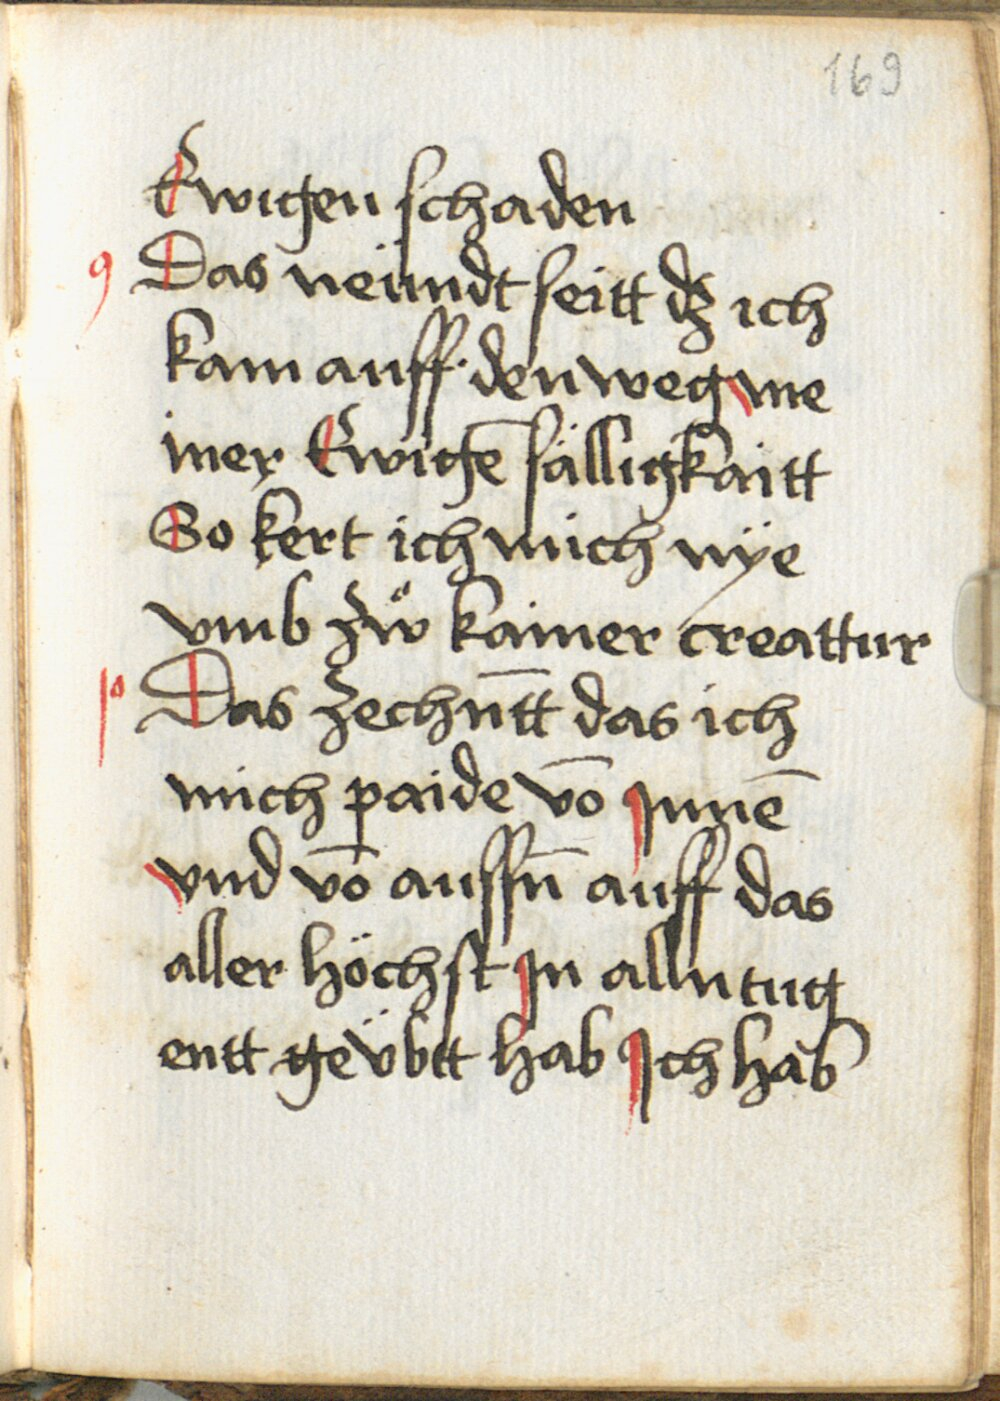 169
Ewigen schaden
9 Das neündt seitt dz ich
kam auff den weg me
iner Ewigē sälligkaitt
So kert ich mich nÿe
vmb zwͦ kainer creattur
10 Das zechn̄tt das ich
mich paide vō Innē
vnd vō aussn̄ auff das
aller höchst In alln tug
entt gev̈btt hab Ich hab